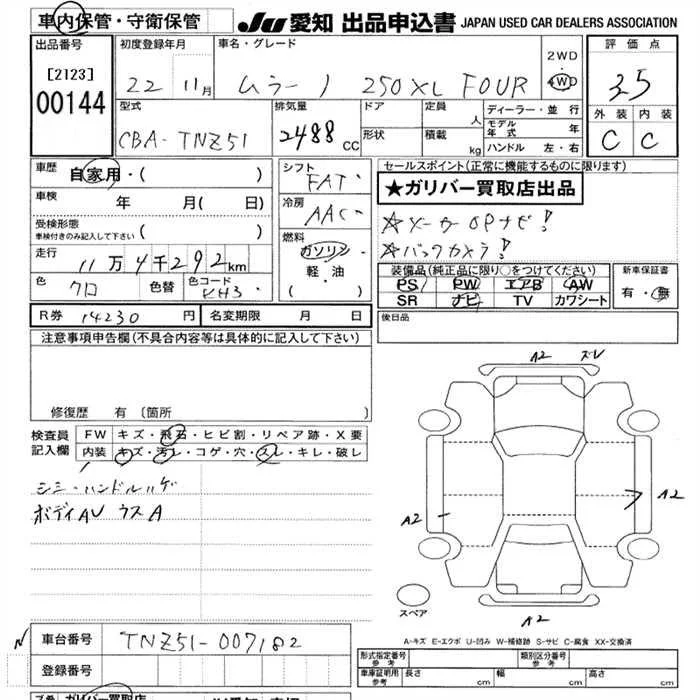 車内保管・守衛保管 JU 愛知 出品申込書 JAPAN USED CAR DEALERS ASSOCIATION
出品番号 初度登録年月 車名・グレード 2WD・4WD 評価点
[2123]
00144
22 11月 ムラーノ 250XL FOUR 3.5
型式 排気量 ドア 定員 人 ディーラー・並行 外装 内装
CBA-TNZ51 2488CC 形状 積載 kg モデル年式 年 C C
ハンドル 左・右
車歴 自家用・( ) シフト FAT セールスポイント(正常に機能するものに限ります)
車検 年 月( 日) 冷房 AAC ★ガリバー買取店出品
受検形態 車検付きのみ記入して下さい ( ) 燃料 ガソリン・軽油・( ) ☆メーカーOPナビ!
走行 11万4千292km ☆バックカメラ!
色 クロ 色替 色コード KH3 装備品(純正品に限り○をつけてください) 新車保証書
PS PW エアB AW 有・無
SR ナビ TV カワシート
R券 14230円 名変期限 月 日 後日品
注意事項申告欄(不具合内容等は具体的に記入して下さい)
修復歴 有 〔箇所 〕
検査員記入欄 FW キズ・飛石・ヒビ割・リペア跡・X要
内装 キズ・汚れ・コゲ・穴・スレ・キレ・破レ
シミ・ハンドルハゲ
ボディAU ウスA
A2 ズレ
A2
A2
スペア A2
A-キズ E-エクボ U-凹み W-補修跡 S-サビ C-腐食 XX-交換済
車台番号 TNZ51-007182
形式指定番号 参考 類別区分番号 参考
登録番号 車庫証明用 参考 長さ cm 幅 cm 高さ cm
ガリバー買取店